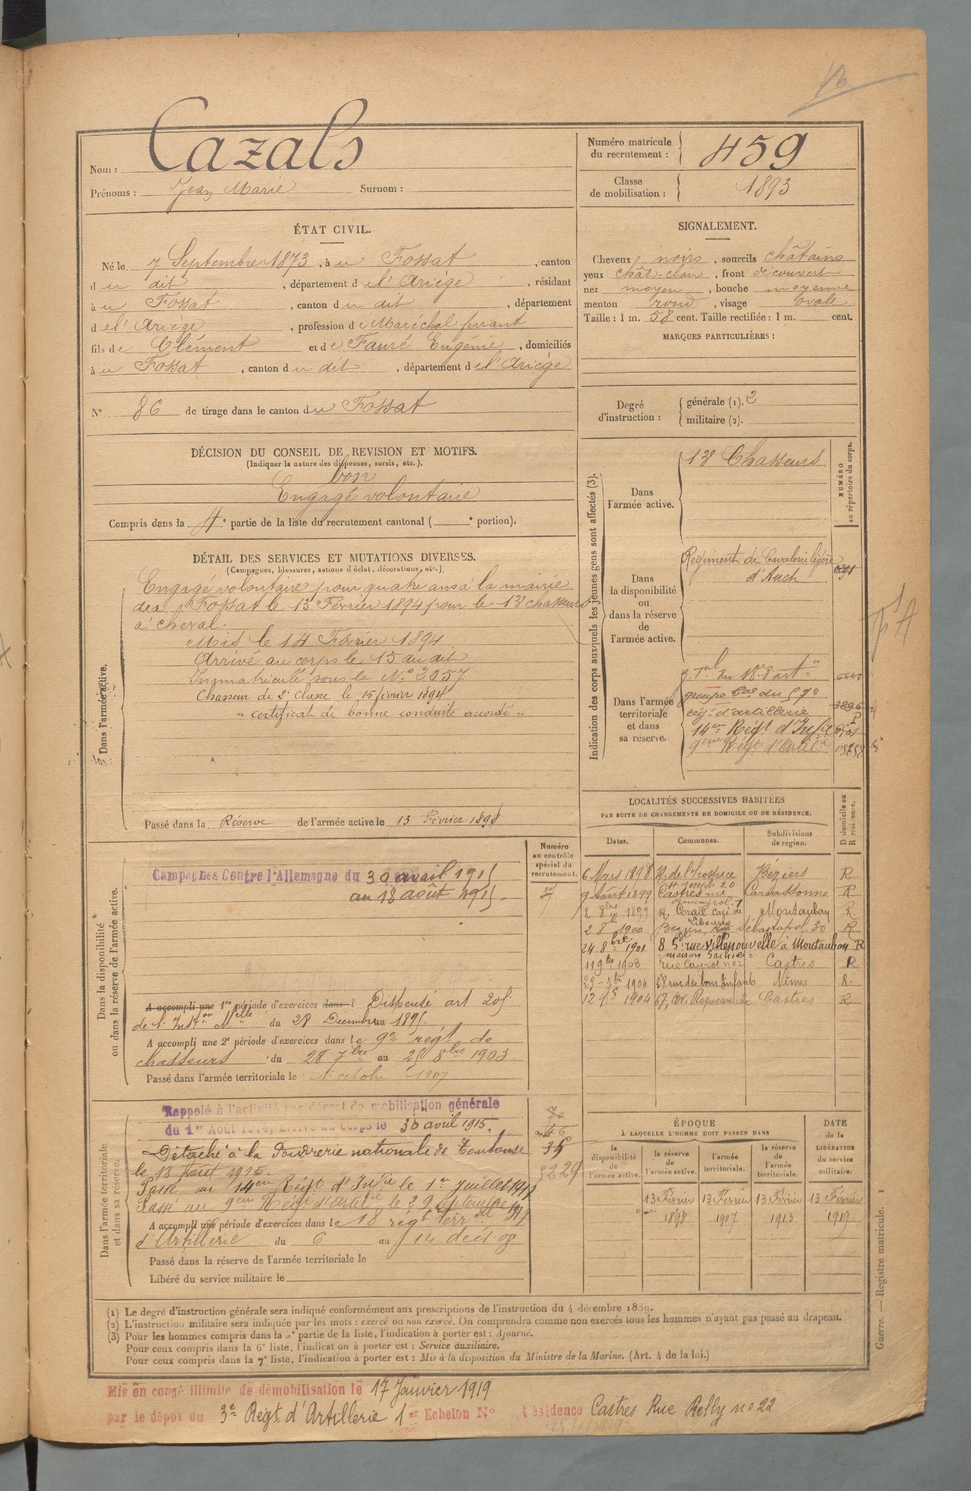 Nom : Cazals
Prénoms : Jean Marie Surnom :
Numéro matricule du recrutement : 459
Classe de mobilisation : 1893
ÉTAT CIVIL.
Né le 7 Septembre 1873, à u Fossat, canton
d u dit, département d e l'Ariège, résidant
à u Fossat, canton d u dit, département
d e l'Ariège, profession d e Maréchal ferrant
fils d e Clément et d e Fauré Eugénie, domiciliés
à u Fossat, canton d u dit, département d e l'Ariège
N° 86 de tirage dans le canton d u Fossat
SIGNALEMENT.
Cheveux noirs, sourcils châtains
yeux chât. clair, front découvert
nez moyen, bouche moyenne
menton rond, visage ovale
Taille : 1 m. 58 cent. Taille rectifiée : 1 m. cent.
MARQUES PARTICULIÈRES :
Degré d'instruction : générale (1). 3
militaire (2).
DÉCISION DU CONSEIL DE REVISION ET MOTIFS.
(Indiquer la nature des dispenses, sursis, etc.).
bon
Engagé volontaire
Compris dans la 4e partie de la liste du recrutement cantonal ( e portion).
DÉTAIL DES SERVICES ET MUTATIONS DIVERSES.
(Campagnes, blessures, actions d'éclat, décorations, etc.).
Dans l'armée active.
Engagé volontaire pour quatre ans à la mairie
de Fossat le 13 Février 1894 pour le 13e chasseurs
à cheval.
Mis le 14 Février 1894
Arrivé au corps le 15 du dit
Immatriculé sous le N° 2057
Chasseur de 2e classe le 15 février 1894
" certificat de bonne conduite accordé "
Passé dans la Réserve de l'armée active le 13 Février 1898
Indication des corps auxquels les jeunes gens sont affectés (3).
NUMÉRO au répertoire du corps.
Dans l'armée active.
13e Chasseurs
Dans la disponibilité ou dans la réserve de l'armée active.
Régiment de Cavalerie légère
d'Auch
Dans l'armée territoriale et dans sa réserve.
groupe du 57e
rég. d'artillerie
14em Régt d'Infie
9ème Régt d'Artil
Dans la disponibilité ou dans la réserve de l'armée active.
Numéro au contrôle spécial du recrutement.
Campagnes Contre l'Allemagne du 30 avril 1915
au 18 août 1915
A accompli une 1re période d'exercices dans l Dispensé art 205
de l'Instron Melle du 28 Décembre 1895.
A accompli une 2e période d'exercices dans l e 9e régt de
chasseurs du 28 7bre au 25 8bre 1903
Passé dans l'armée territoriale le 1er octobre 1907
LOCALITÉS SUCCESSIVES HABITÉES
PAR SUITE DE CHANGEMENTS DE DOMICILE OU DE RÉSIDENCE.
Dates. Communes. Subdivisions de région. D domicile ou R résidence.
6 Mars 1898 Béziers R
9 Août 1899 Castres Carcassonne R
2 8bre 1899 Montauban R
2 8bre 1900 R
24 8bre 1901 8 rue Villenouvelle à Montauban R
1903 Castres R
1904 28 rue des bons Enfants Nîmes R
1904 Castres R
Dans l'armée territoriale et dans sa réserve.
Rappelé à l'activité par décret de mobilisation générale
du 1er Août 1914, arrivé au corps le 30 avril 1915.
Détaché à la Poudrerie nationale de Toulouse
le 13 Août 1915.
Passé au 14em Régt d'Infie le 1er juillet 1917
Passé au 9em Régt d'Artie le 29
A accompli une période d'exercices dans l e 18 régt terral
d'Artillerie du 6 au 14 déc. 09
Passé dans la réserve de l'armée territoriale le
Libéré du service militaire le
35
3229
ÉPOQUE
À LAQUELLE L'HOMME DOIT PASSER DANS
DATE de la LIBÉRATION du service militaire.
la disponibilité de l'armée active. la réserve de l'armée active. l'armée territoriale. la réserve de l'armée territoriale.
13 Février 1898 13 Février 1907 13 Février 1913 13 Février 1919
(1) Le degré d'instruction générale sera indiqué conformément aux prescriptions de l'instruction du 4 décembre 1889.
(2) L'instruction militaire sera indiquée par les mots : exercé ou non exercé. On comprendra comme non exercés tous les hommes n'ayant pas passé au drapeau.
(3) Pour les hommes compris dans la 5e partie de la liste, l'indication à porter est : Ajourné.
Pour ceux compris dans la 6e liste, l'indication à porter est : Service auxiliaire.
Pour ceux compris dans la 7e liste, l'indication à porter est : Mis à la disposition du Ministre de la Marine. (Art. 4 de la loi.)
Guerre. — Registre matricule. 1
Mis en congé illimité de démobilisation le 17 Janvier 1919
par le dépôt du 3e Régt d'Artillerie 1er Echelon N° Résidence Castres Rue Relly no 22